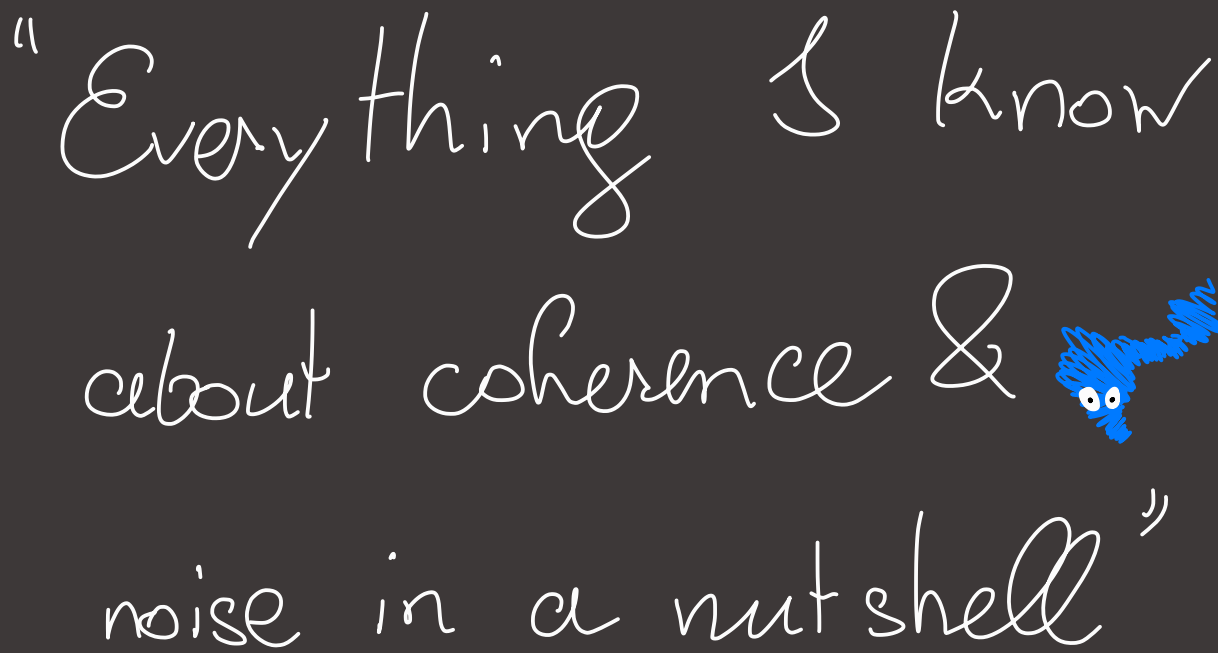 "Everything I know
about coherence &
noise in a nutshell"